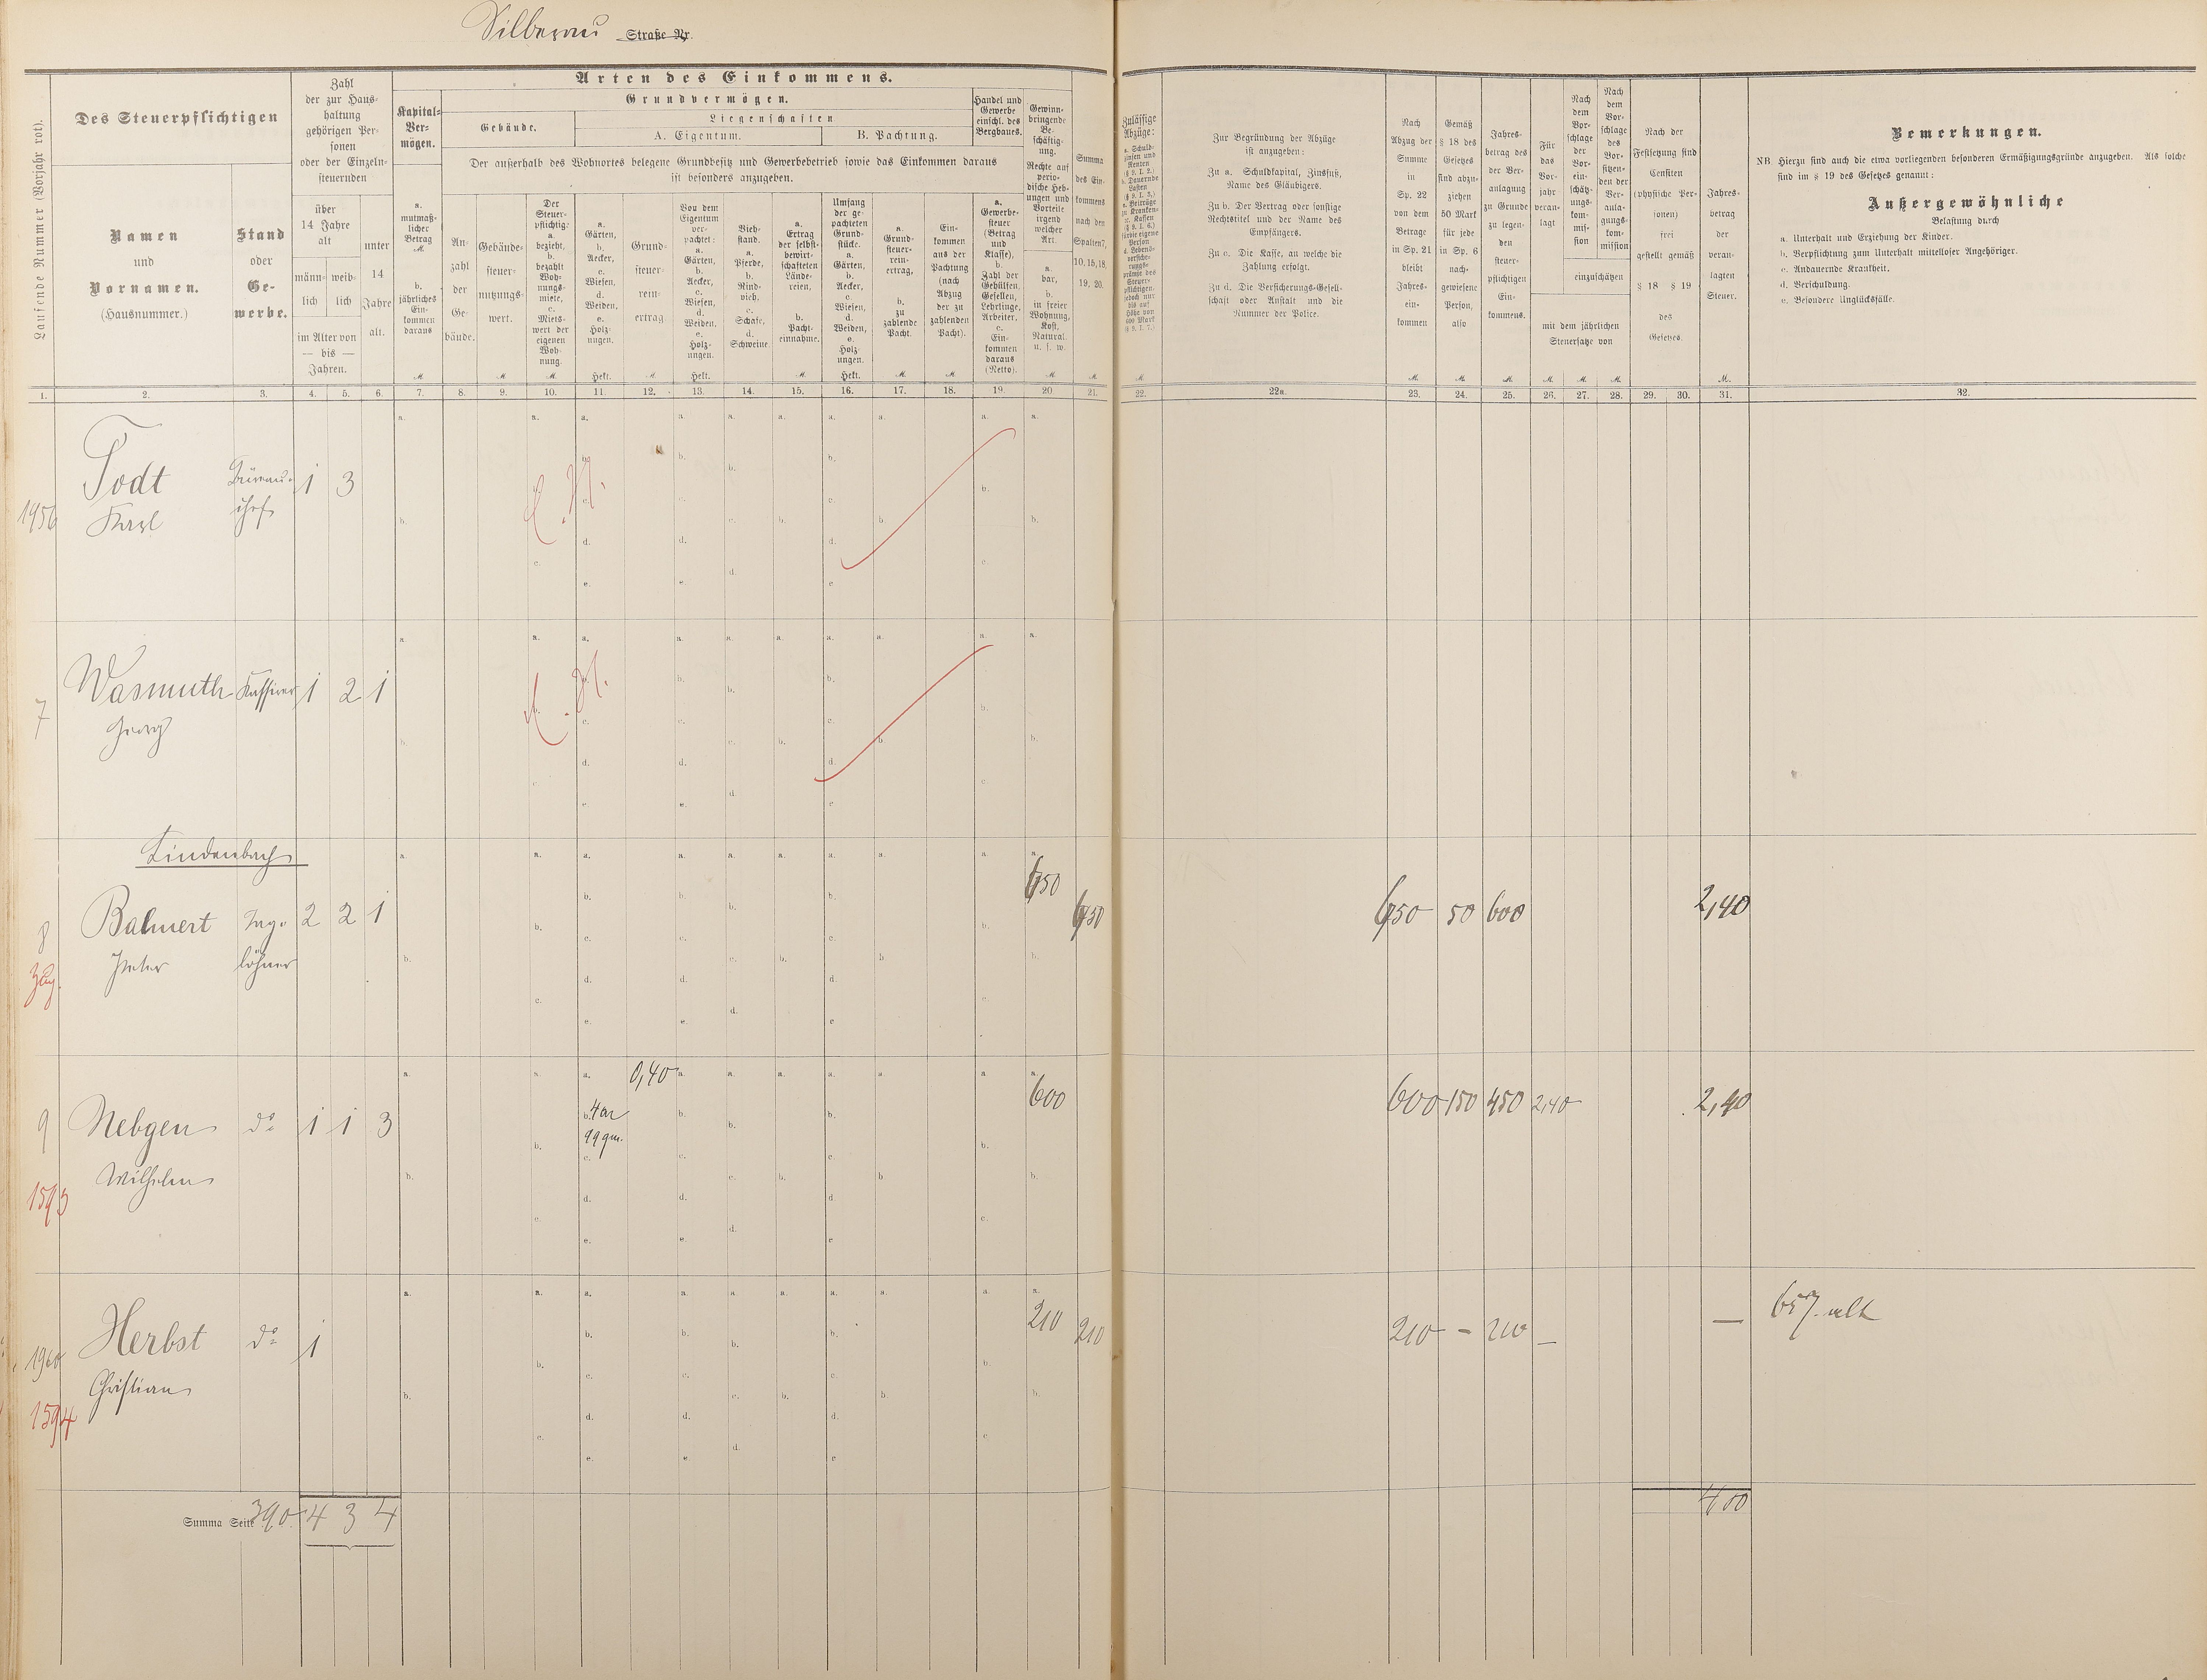 Silberau Straße Nr.
Laufende Nummer (Vorjahr rot).
Des Steuerpflichtigen
Namen
und
Vornamen.
(Hausnummer.)
Stand
oder
Ge-
werbe.
Zahl
der zur Haus-
haltung
gehörigen Per-
sonen
oder der Einzeln-
steuernden
über
14 Jahre
alt
männ-
lich
weib-
lich
im Alter von
— bis —
Jahren.
unter
14
Jahre
alt.
Arten des Einkommens.
Kapital-
Ver-
mögen.
a.
mutmaß-
licher
Betrag
M.
b.
jährliches
Ein-
kommen
daraus
M.
Grundvermögen.
Gebäude.
Liegenschaften
A. Eigentum.
B. Pachtung.
Der außerhalb des Wohnortes belegene Grundbesitz und Gewerbebetrieb sowie das Einkommen daraus
ist besonders anzugeben.
An-
zahl
der
Ge-
bäude.
Gebäude-
steuer-
nutzungs-
wert.
M.
Der
Steuer-
pflichtig-
a.
bezieht,
b.
bezahlt
Woh-
nungs-
miete,
c.
Miets-
wert der
eigenen
Woh-
nung.
M.
a.
Gärten,
b.
Aecker,
c.
Wiesen,
d.
Weiden,
e.
Holz-
ungen.
Hekt.
Grund-
steuer-
rein-
ertrag
M.
Von dem
Eigentum
ver-
pachtet:
a.
Gärten,
b.
Aecker,
c.
Wiesen,
d.
Weiden,
e.
Holz-
ungen.
Hekt.
Vieh-
stand.
a.
Pferde,
b.
Rind-
vieh,
c.
Schafe,
d.
Schweine
a.
Ertrag
der selbst-
bewirt-
schafteten
Lände-
reien,
b.
Pacht-
einnahme.
M.
Umfang
der ge-
pachteten
Grund-
stücke.
a.
Gärten,
b.
Aecker,
c.
Wiesen,
d.
Weiden,
e.
Holz-
ungen.
Hekt.
a.
Grund-
steuer-
rein-
ertrag,
b.
zu
zahlende
Pacht.
M.
Ein-
kommen
aus der
Pachtung
(nach
Abzug
der zu
zahlenden
Pacht).
M.
Handel und
Gewerbe
einschl. des
Bergbaues.
a.
Gewerbe-
steuer
(Betrag
und
Klasse),
b.
Zahl der
Gehülfen,
Gesellen,
Lehrlinge,
Arbeiter,
c.
Ein-
kommen
daraus
(Netto).
Gewinn-
bringende
Be-
schäftig-
ung.
Rechte auf
perio-
dische Heb-
ungen und
Vorteile
irgend
welcher
Art.
a.
bar,
b.
in freier
Wohnung,
Kost,
Natural.
u. s. w.
M.
Summa
des Ein-
kommens
nach den
Spalten 7,
10, 15, 18,
19, 20.
M.
Zulässige
Abzüge:
a. Schuld-
zinsen und
Renten
(§ 9. I. 2.)
b. Dauernde
Lasten
M.
Zur Begründung der Abzüge
ist anzugeben:
Zu a. Schuldkapital, Zinsfuß,
Name des Gläubigers.
Zu b. Der Vertrag oder sonstige
Rechtstitel und der Name des
Empfängers.
Zu c. Die Kasse, an welche die
Zahlung erfolgt.
Zu d. Die Versicherungs-Gesell-
schaft oder Anstalt und die
Nummer der Police.
Nach
Abzug der
Summe
in
Sp. 22
von dem
Betrage
in Sp. 21
bleibt
Jahres-
ein-
kommen
M.
Gemäß
§ 18 des
Gesetzes
sind abzu-
ziehen
50 Mark
für jede
in Sp. 6
nach-
gewiesene
Person,
also
M.
Jahres-
betrag des
der Ver-
anlagung
zu Grunde
zu legen-
den
steuer-
pflichtigen
Ein-
kommens.
M.
Für
das
Vor-
jahr
veran-
lagt
M.
Nach
dem
Vor-
schlage
der
Vor-
ein-
schätz-
ungs-
kom-
mis-
sion
M.
Nach
dem
Vor-
schlage
des
Vor-
sitzen-
den der
Ver-
anla-
gungs-
kom-
mission
M.
einzuschätzen
mit dem jährlichen
Steuersatze von
Nach der
Festsetzung sind
Censiten
(physische Per-
sonen)
frei
gestellt gemäß
§ 18 § 19
des
Gesetzes.
Jahres-
betrag
der
veran-
lagten
Steuer.
M.
Bemerkungen.
NB. Hierzu sind auch die etwa vorliegenden besonderen Ermäßigungsgründe anzugeben. Als solche
sind im § 19 des Gesetzes genannt:
Außergewöhnliche
Belastung durch
a. Unterhalt und Erziehung der Kinder.
b. Verpflichtung zum Unterhalt mittelloser Angehöriger.
c. Andauernde Krankheit.
d. Verschuldung.
e. Besondere Unglücksfälle.
1. 2. 3. 4. 5. 6. 7. 8. 9. 10. 11. 12. 13. 14. 15. 16. 17. 18. 19. 20 21. 22. 22a. 23. 24. 25. 26. 27. 28. 29. 30. 31. 32.
1956 Todt 1 3
Karl
7 Wasmuth Kassirer 1 2 1
Georg
Lindenbach
8 Balmert Tage- 2 2 1 650 650 650 50 600 2,40
Zug. Peter löhner
9 Nebgen do 1 1 3 4 ar 99 qm. 0,40 600 600 150 450 2,40 2,40
1593 Wilhelm
1960 Herbst do 1 210 210 210 – 210 — — 65 J. alt
1594 Christian
Summa Seite 390. 4 3 4 400